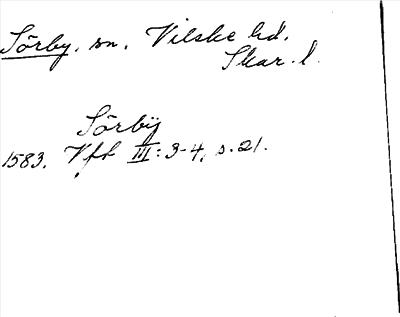 Sörby, sn. Vilske hd.
Skar. l.
Sörby
1583. Vfh III: 3-4, s. 21.